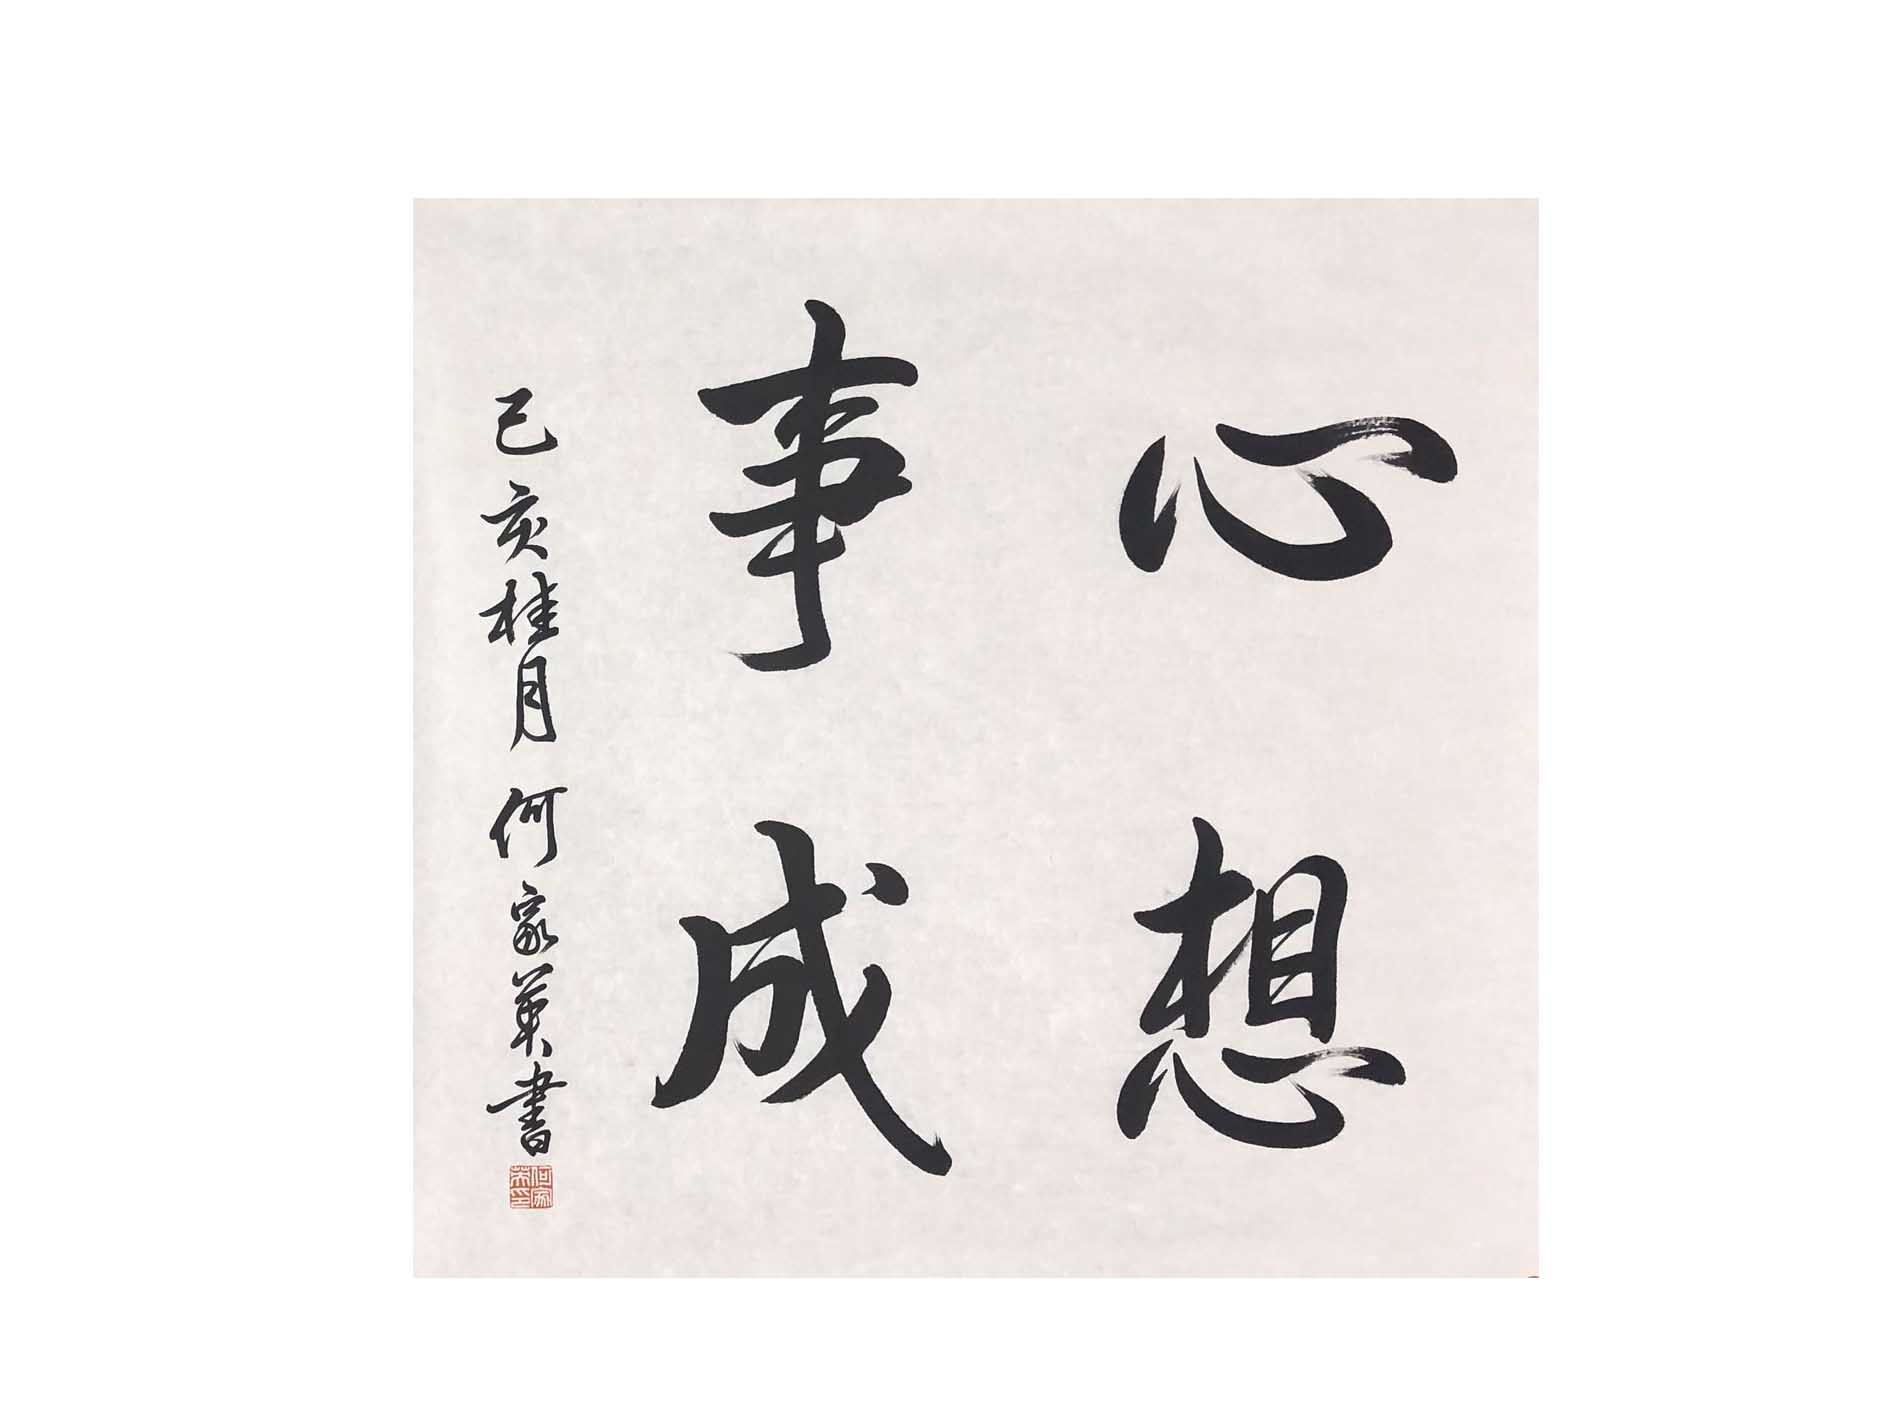 心想
事成
己亥桂月何家英書
何家英印